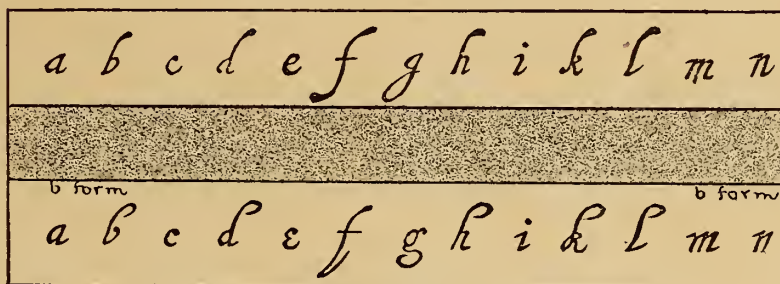 a b c d e f g h i k l m n
b form b form
a b c d ε f g h i k l m n